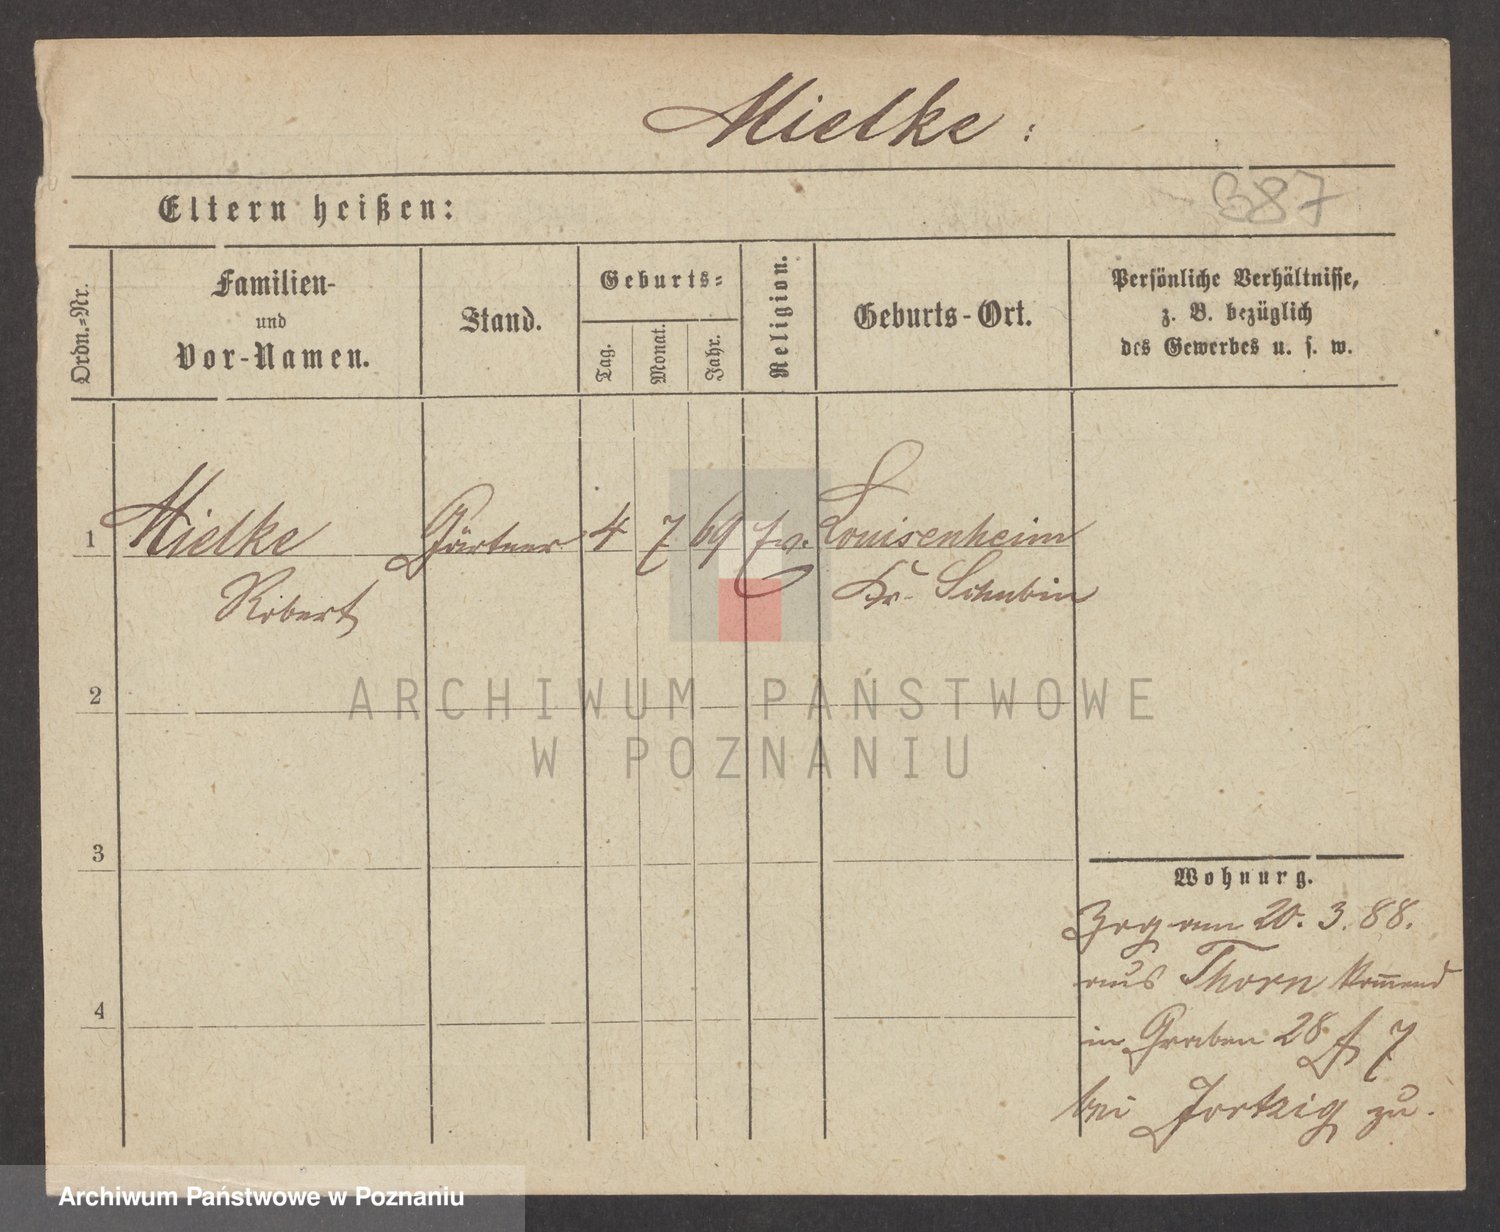 Mielke:
387
Eltern heißen:
Ordn.-Nr.
Familien-
und
Vor-Namen.
Stand.
Geburts-
Tag.
Monat.
Jahr.
Religion.
Geburts-Ort.
Persönliche Verhältnisse,
z. B. bezüglich
des Gewerbes u. s. w.
1 Mielke Gärtner 4 7 69 ev. Louisenheim
Robert Kr. Schubin
2
3
4
ARCHIWUM PAŃSTWOWE
W POZNANIU
Wohnurg.
Zog am 20. 3. 88.
aus Thorn kom̅end
in Graben 28 7
bei zu.
Archiwum Państwowe w Poznaniu